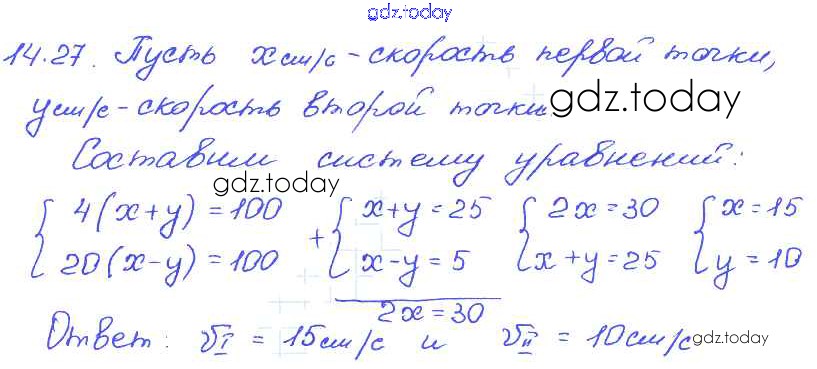 gdz.today
14.27. Пусть x см/с - скорость первой точки,
y см/с - скорость второй точки.
gdz.today
Составим систему уравнений:
gdz.today
{ 4(x+y) = 100 + { x+y = 25 { 2x = 30 { x = 15
20(x-y) = 100 x-y = 5 x+y = 25 y = 10
2x = 30
Ответ: V_I = 15 см/с и V_II = 10 см/с
gdz.today